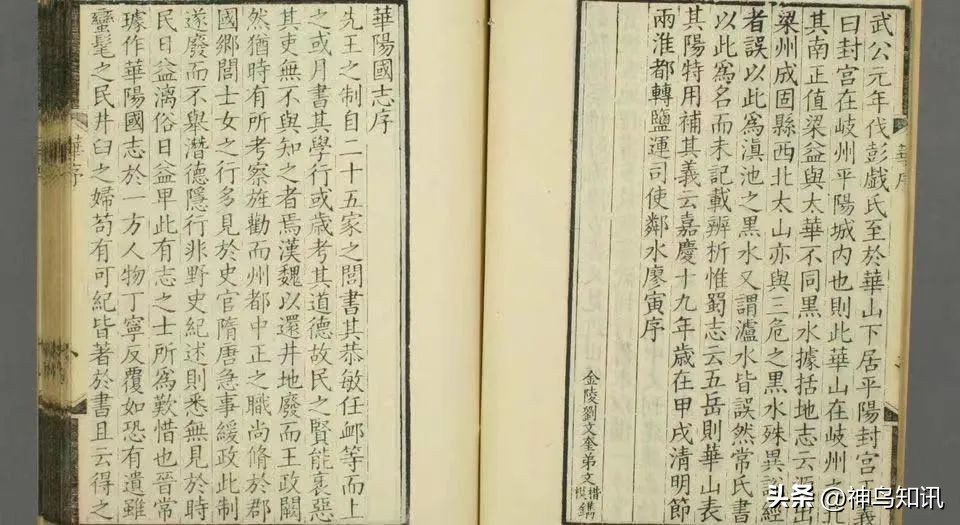 武公元年伐彭戲氏至於華山下居平陽封宮正義
曰封宮在岐州平陽城內也則此華山在岐州之北
其南正值梁益與太華不同黑水據括地志云源出
梁州成固縣西北太山亦與三危之黑水殊異說經
者誤以此爲滇池之黑水又謂瀘水皆誤然常氏書
以此爲名而未記載辨析惟蜀志云五岳則華山表
其陽特用補其義云嘉慶十九年歲在甲戌清明節
兩淮都轉鹽運司使鄰水廖寅序
金陵劉文奎弟文楷模鐫
華陽國志序
先王之制自二十五家之閭書其恭敏任䘏等而上
之或月書其學行或歲考其道德故民之賢能裏惡
其吏無不與知之者焉漢魏以還井地廢而王政闕
然猶時有所考察旌勸而州都中正之職尚脩於郡
國鄉閭士女之行多見於史官隋唐急事緩政此制
遂廢而不舉潛德隱行非野史紀述則悉無見於時
民日益漓俗日益卑此有志之士所爲歎惜也晉常
璩作華陽國志於一方人物丁寧反覆如恐有遺雖
蠻髦之民井臼之婦苟有可紀皆著於書且云得之
華序
头条 @神鸟知讯